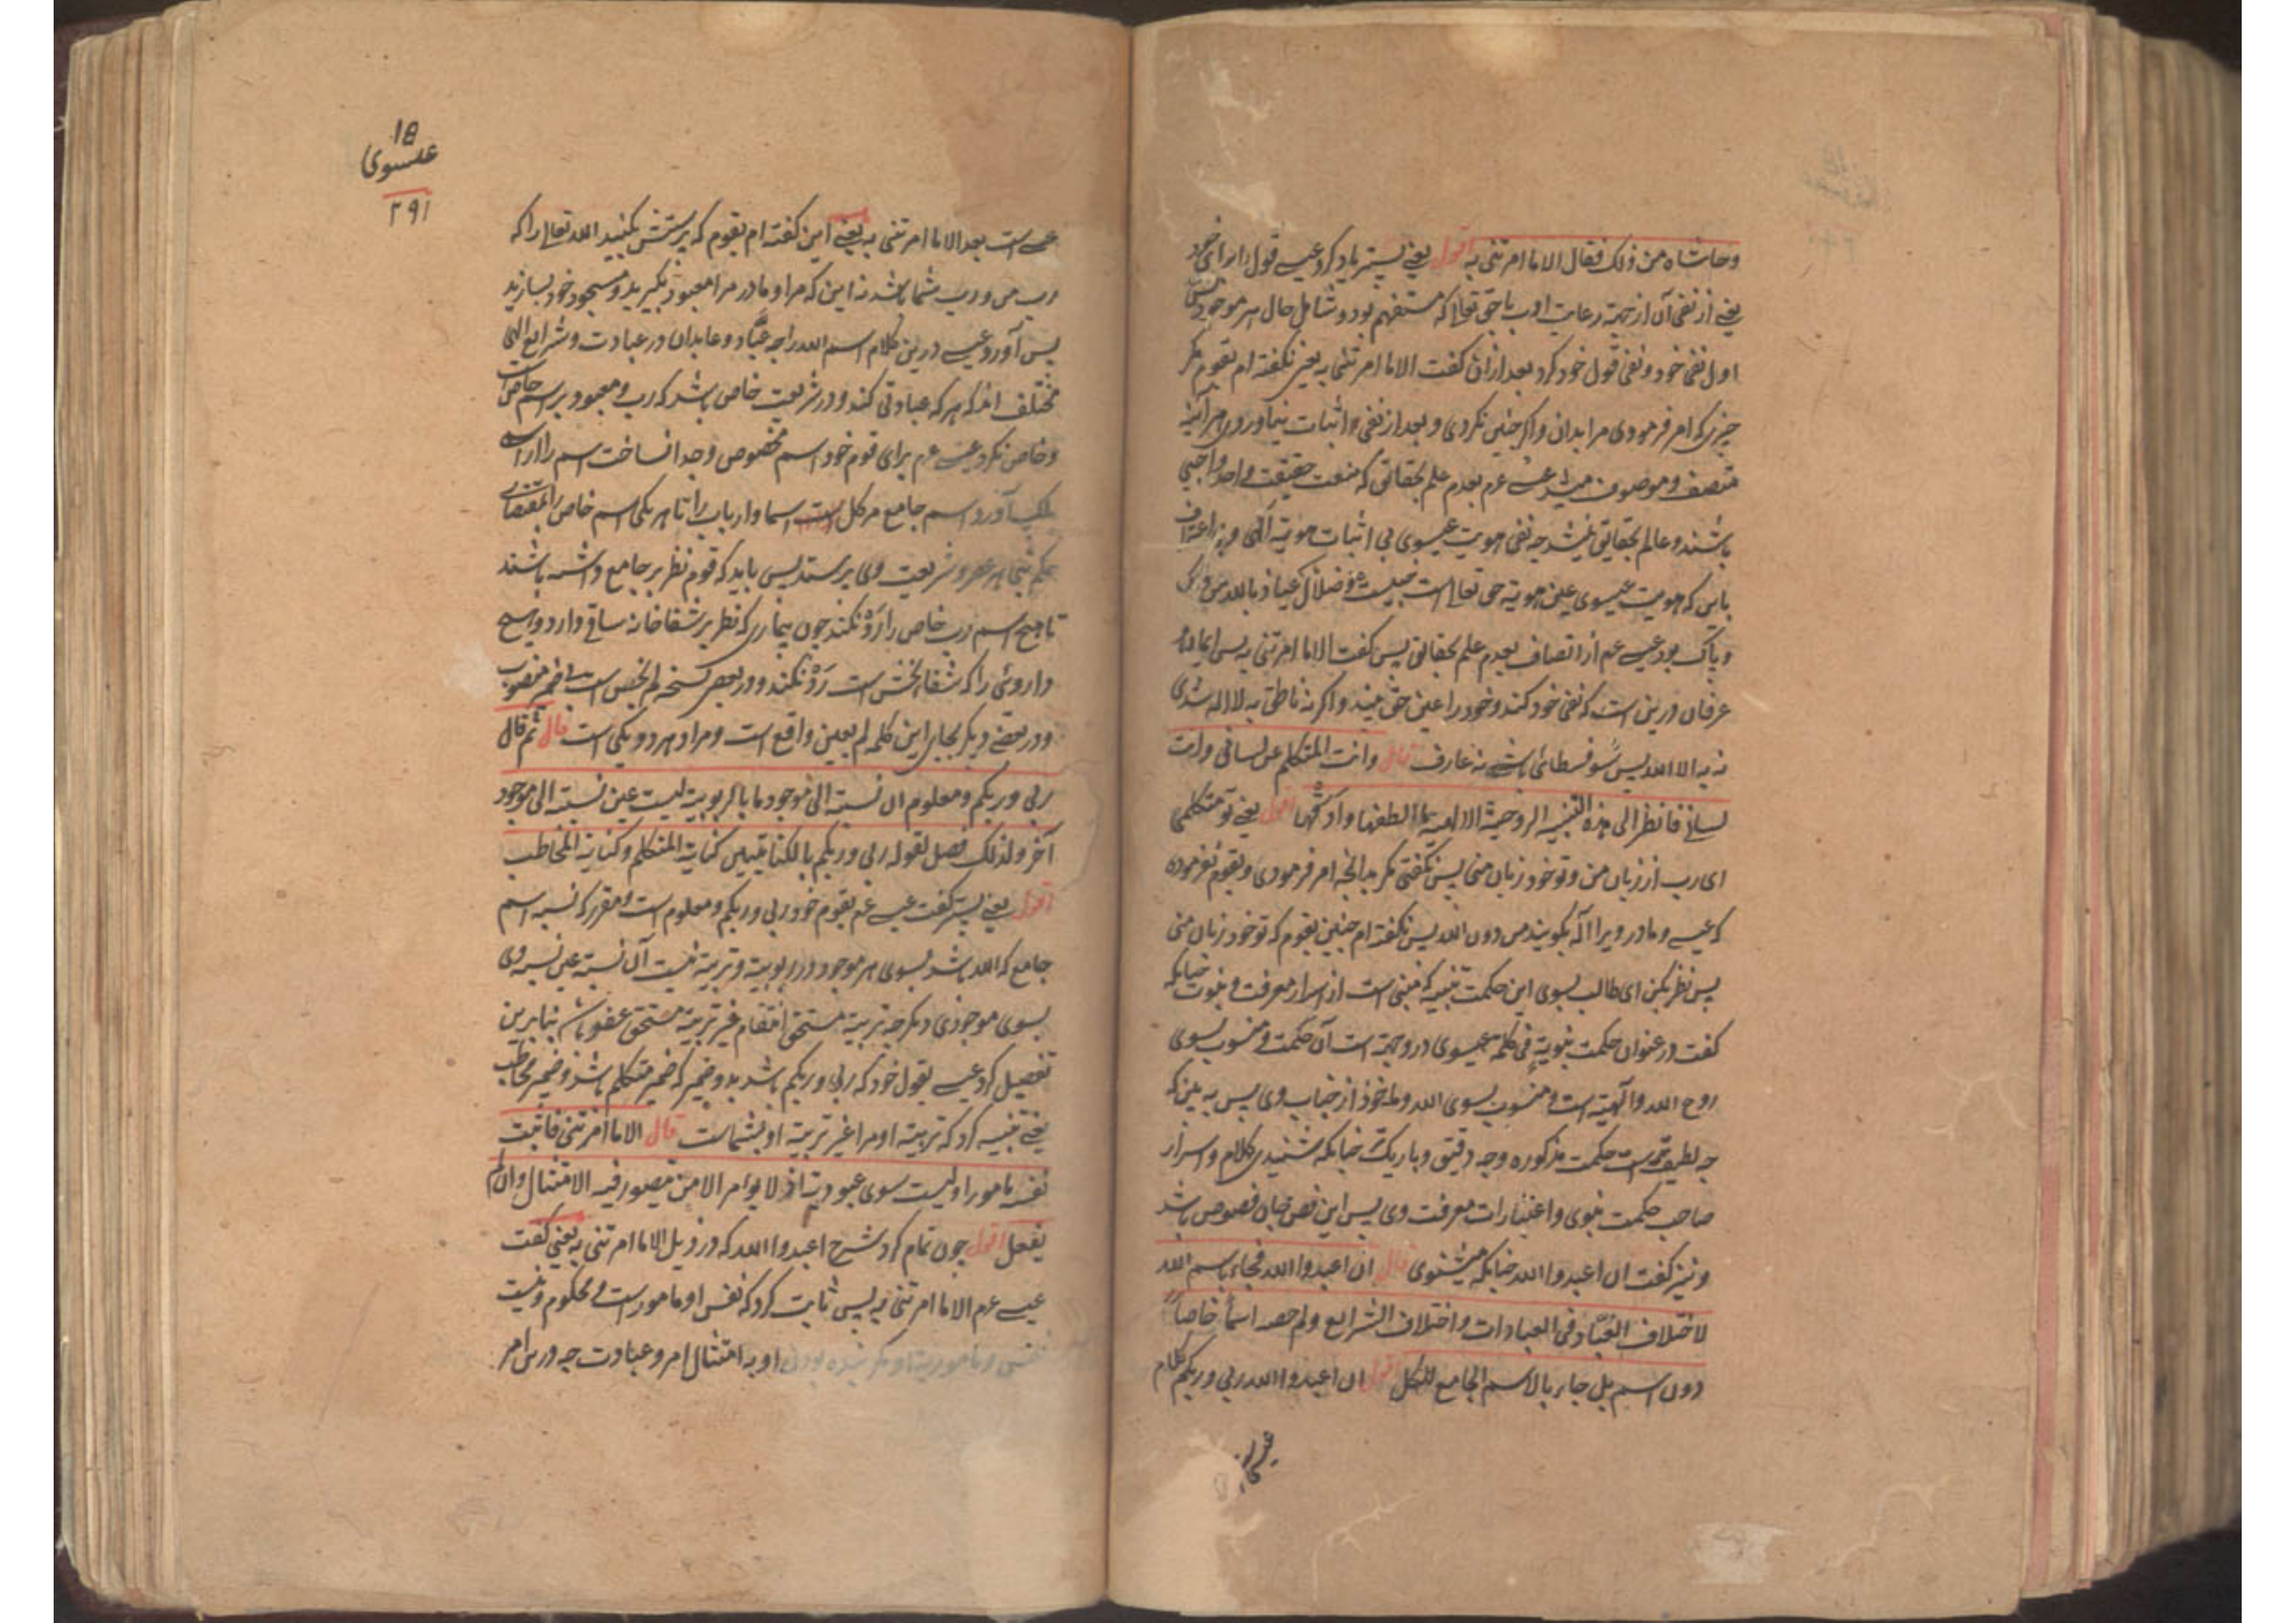 وحاشاه من ذلک فقال الا ما امرتنی به اقول یعنی پستر یاد کرد عیسی قول را برای خود
یعنی از نفی آن از جهة رعایت ادب با حق تعالی که مستفهم بود و شامل حال هر موجود
اول نفی خود و نفی قول خود کرد بعد ازان گفت الا ما امرتنی به یعنی نگفته ام بقوم مگر
چیزی که امر فرمودی مرا بدان و اگر چنین نکردی و بعد از نفی اثبات نیاوردی هر آئینه
متصف و موصوف میشد عیسی عم بعدم علم بحقائق که منعت حقیقت واحد واجبی
باشند و عالم بحقائق نمیشد چه نفی هویت عیسوی بی اثبات هویة الهی و بی اعتراف
باین که هویت عیسوی عین هویة حق تعالی است ضلال عیاذ بالله من ذلک
و پاک بود عیسی عم از اتصاف بعدم علم بحقائق پس گفت الا ما امرتنی به پس ایماء
عرفان درین است که نفی خود کند و خود را عین حق بیند و اگر نه ناطق به لا اله شدی
نه به الا الله پس سوفسطائی باشد نه عارف قال وانت المتکلم عن لسانی وانت
لسانی فانظر الی هذه التنبیه الروحیة الالهیة ما الطفها وادقها اقول یعنی تو متکلمی
ای رب از زبان من و تو خود زبان منی پس نگفتی مگر بدانچه امر فرمودی و بقوم نفرموده
که عیسی و مادر ویرا اله بگویند من دون الله پس نگفته ام چنین بقوم که تو خود زبان منی
پس نظر بکن ای طالب بسوی این حکمت تنبیه که مبنی است از اسرار معرفت و نبوت چنانکه
گفت در عنوان حکمت نبویة فی کلمة عیسوی و روحیة است آن حکمت و منسوب بسوی
روح الله و الهیة است و منسوب بسوی الله و ماخوذ از جناب وی پس به بین که
چه لطیف است حکمت مذکوره و چه دقیق و باریک چنانکه شنیدی کلام و اسرار
صاحب حکمت نبوی و اعتبارات معرفت وی پس این فص جان فصوص باشد
و نیز گفت ان اعبدوا الله چنانکه میشنوی قال ان اعبدوا الله فجاء باسم الله
لاختلاف العباد فی العبادات واختلاف الشرایع ولم یخص اسما خاصا
دون اسم بل جاء بالاسم الجامع للکل اقول ان اعبدوا الله ربی وربکم کلام
18
عیسوی
۲۹۱
عیسی است بعد الا ما امرتنی به یعنی این گفته ام بقوم که پرستش بکنید الله تعالی را که
رب من و رب شما باشد نه این که مرا و مادر مرا معبود بگیرید و مسجود خود بسازید
پس آورد عیسی درین کلام اسم الله را چه عبّاد و عابدان در عبادت و شرایع الهی
مختلف اند که هر که عبادتی کند و در شریعت خاص باشد که رب و معبود بر اسم خاص است
و خاص نکرد عیسی عم برای قوم خود اسم مخصوص و جدا نساخت اسم را از اسم
بلکه آورد اسم جامع مر کل اسما و ارباب را تا هر یکی اسم خاص را بمقتضای
حکم نبی هر عصر و شریعت وی پرستد پس باید که قوم نظر بر جامع داشته باشند
تا هیچ اسم رب خاص را رد نکنند چون بیماری که نظر بر شفاخانه ساقی دارد و هیچ
داروئی را که شفا بخش است رد نکند و در بعض نسخه لم یخص است بضمیر منصوب
و در بعضی دیگر بجای این کلمه لم یعین واقع است و مراد هر دو یکی است قال ثم قال
ربی وربکم ومعلوم ان نسبته الی موجود ما بالربوبیة لیست عین نسبته الی موجود
آخر ولذلک فصل لقوله ربی وربکم بالکنایتین کنایة المتکلم وکنایة المخاطب
اقول یعنی پستر گفت عیسی عم بقوم خود ربی وربکم و معلوم است و مقرر که نسبة اسم
جامع که الله باشد بسوی هر موجود در ربوبیة و تربیة نیست آن نسبة عین نسبة وی
بسوی موجودی دیگر چه تربیة مستحق انتقام غیر تربیة مستحق عفو باشد بنابرین
تفصیل کرد عیسی بقول خود که ربی وربکم باشد بدو ضمیر که ضمیر متکلم باشد و ضمیر مخاطب
یعنی تنبیه کرد که تربیة او مرا غیر تربیة او بشماست قال الا ما امرتنی فاثبت
نفسه مامورا ولیست سوی عبودیته اذ لا یؤمر الا من یتصور فیه الامتثال وان لم
یفعل اقول چون تمام کرد شرح اعبدوا الله که در ذیل الا ما امرتنی به یعنی گفت
عیسی عم الا ما امرتنی به پس ثابت کرد که نفس او مامور است و محکوم و نیست
نفس و ماموریة او مگر بنده بودن او به امتثال امر و عبادت چه درین امر